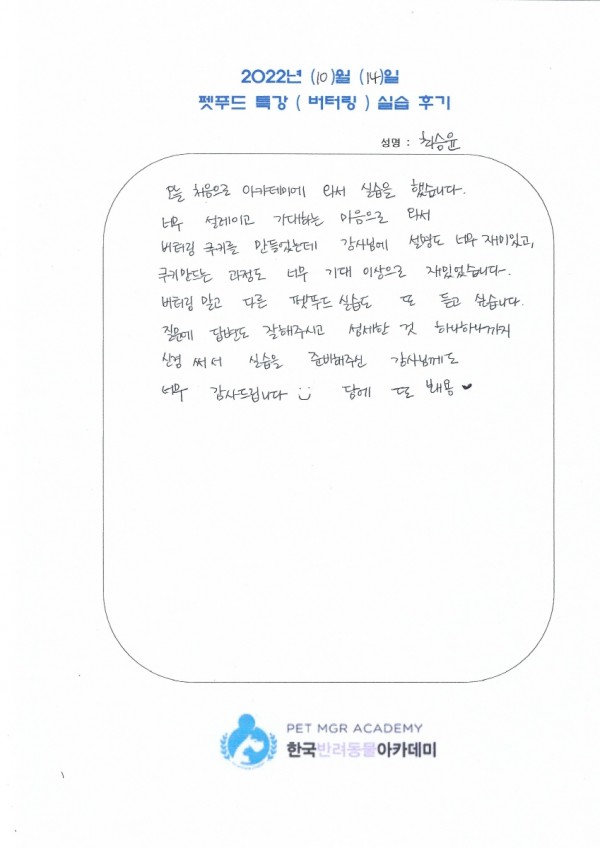 2022년 (10)월 (14)일
펫푸드 특강 ( 버터링 ) 실습 후기
성명 : 최승윤
오늘 처음으로 아카데미에 와서 실습을 했습니다.
너무 설레이고 기대하는 마음으로 와서
버터링 쿠키를 만들었는데 강사님에 설명도 너무 재미있고,
쿠키만드는 과정도 너무 기대 이상으로 재밌었습니다.
버터링 말고 다른 펫푸드 실습도 또 듣고 싶습니다.
질문에 답변도 잘해주시고 섬세한 것 하나하나까지
신경 써서 실습을 준비해주신 강사님께도
너무 감사드립니다 담에 또 봬용 ♥
PET MGR ACADEMY
한국반려동물아카데미